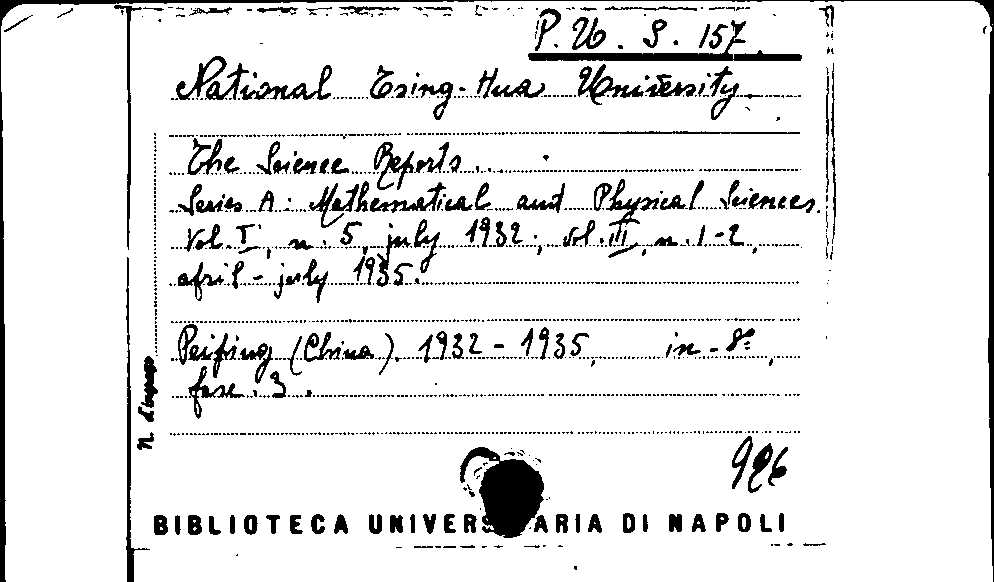 P. U. S. 157.
National Tsing-Hua University.
The Science Reports...
Series A: Mathematical and Physical Sciences.
Vol. I, n. 5, july 1932; vol. III, n. 1-2,
april - july 1935.
Peiping (China). 1932 - 1935, in-8º,
fasc. 3.
N. d'ingresso
926
BIBLIOTECA UNIVERS ARIA DI NAPOLI